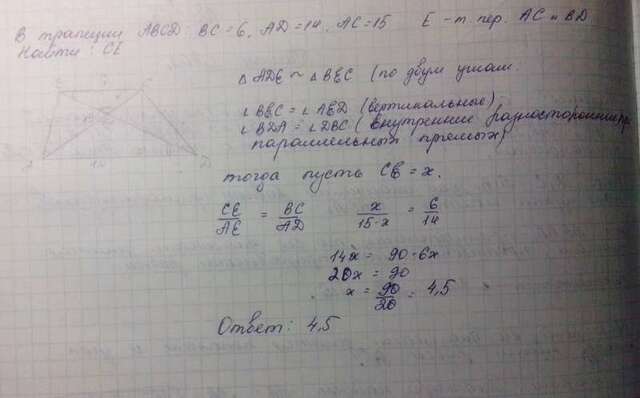 В трапеции ABCD: BC = 6, AD = 14, AC = 15 E - т. пер. AC и BD
Найти: CE
△ ADE ~ △ BEC (по двум углам.
∠ BEC = ∠ AED (вертикальные)
∠ BDA = ∠ DBC (внутренние разносторонние при
параллельных прямых)
тогда пусть CE = x.
CE/AE = BC/AD x/15-x = 6/14
14x = 90-6x
20x = 90
x = 90/20 = 4,5
Ответ: 4,5